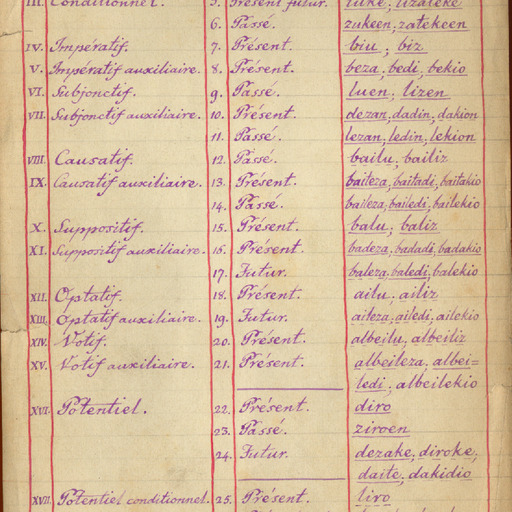 III. Conditionnel. 5. Présent futur. luke, lizateke
6. Passé. zukeen; zatekeen
IV. Impératif. 7. Présent. biu; biz
V. Impératif auxiliaire. 8. Présent. beza, bedi, bekio
VI. Subjonctif. 9. Passé. luen, lizen
VII. Subjonctif auxiliaire. 10. Présent. dezan, dadin, dakion
11. Passé. lezan, ledin, lekion
VIII. Causatif. 12. Passé. bailu, bailiz
IX. Causatif auxiliaire. 13. Présent. baiteza, baitadi, baitakio
14. Passé. baileza, bailedi, bailekio
X. Suppositif. 15. Présent. balu, baliz
XI. Suppositif auxiliaire. 16. Présent. badeza, badadi, badakio
17. Futur. baleza, baledi, balekio
XII. Optatif. 18. Présent. ailu, ailiz
XIII. Optatif auxiliaire. 19. Futur. aileza, ailedi, ailekio
XIV. Votif. 20. Présent. albeilu, albeiliz
XV. Votif auxiliaire. 21. Présent. albeileza, albei=
ledi, albeilekio
XVI. Potentiel. 22. Présent. diro
23. Passé. ziroen
24. Futur. dezake, diroke,
daite, dakidio
XVII. Potentiel conditionnel. 25. Présent. liro